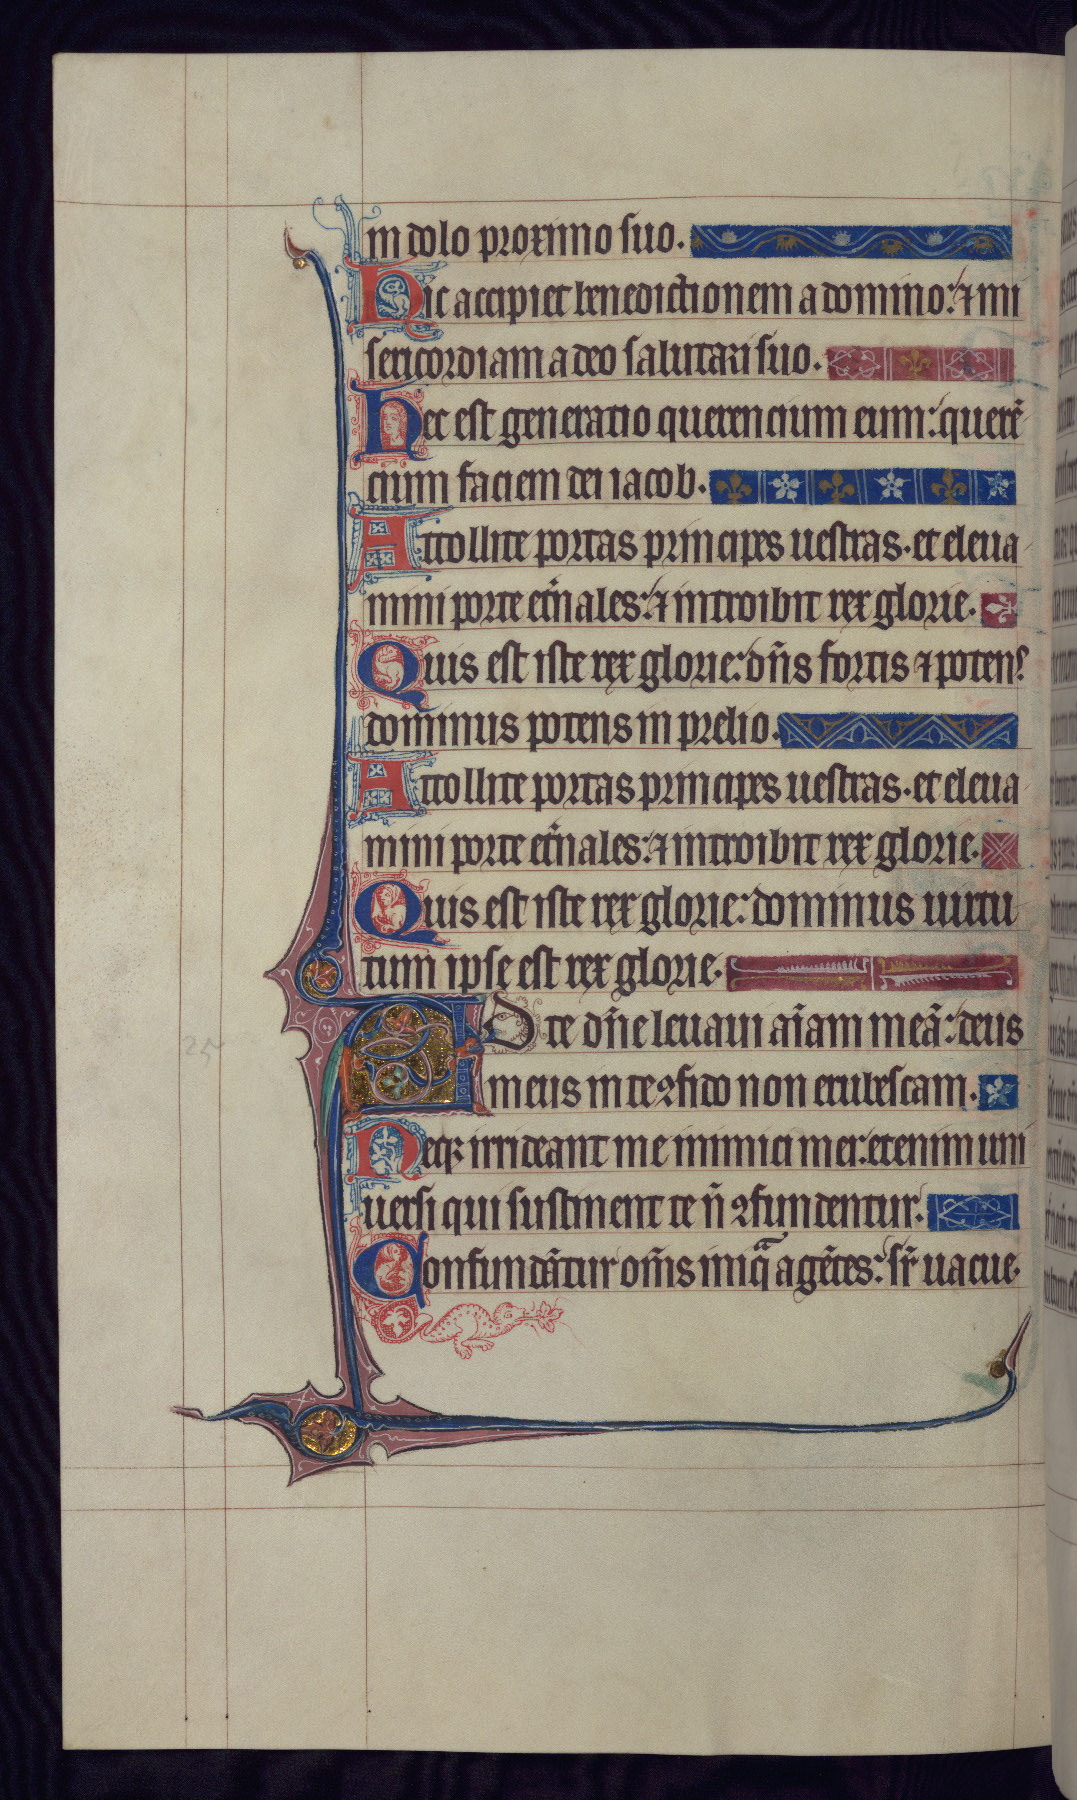 in dolo proximo suo.
Hic accipiet benedictionem a domino: & mi
sericordiam a deo salutari suo.
Hec est generatio querencium eum: querē
cium faciem dei iacob.
Attollite portas principes uestras. et eleua
mini porte et̄nales: & introibit rex glorie.
Quis est iste rex glorie: dn̄s fortis & potens
dominus potens in prelio.
Attollite portas principes uestras. et eleua
mini porte et̄nales: & introibit rex glorie.
Quis est iste rex glorie: dominus uirtu
tum ipse est rex glorie.
AD te dn̄e leuaui aīam meā: deus
meus in te ꝯfido non erubescam.
Neqꝫ irrideant me inimici mei: etenim uni
uersi qui sustinent te n̄ ꝯfundentur.
Confundātur om̄s iniq̄ agētes: sr̄ uacue.
25